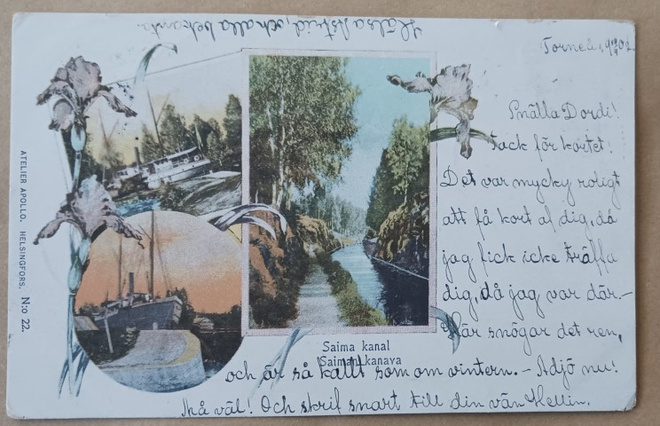 Hälsa Astrid, och alla bekanta
Torneå,
Snälla Dordi!
Tack för kortet!
Det var mycky roligt
att få kort af dig, då
jag fick icke träffa
dig, då jag var där.-
Här snögar det ren,
och är så kallt som om vintern.- Adjö nu!
Må väl! Och skrif snart till din vän Hellin.
Saima kanal
Saiman kanava
ATELIER APOLLO. HELSINGFORS. N:o 22.